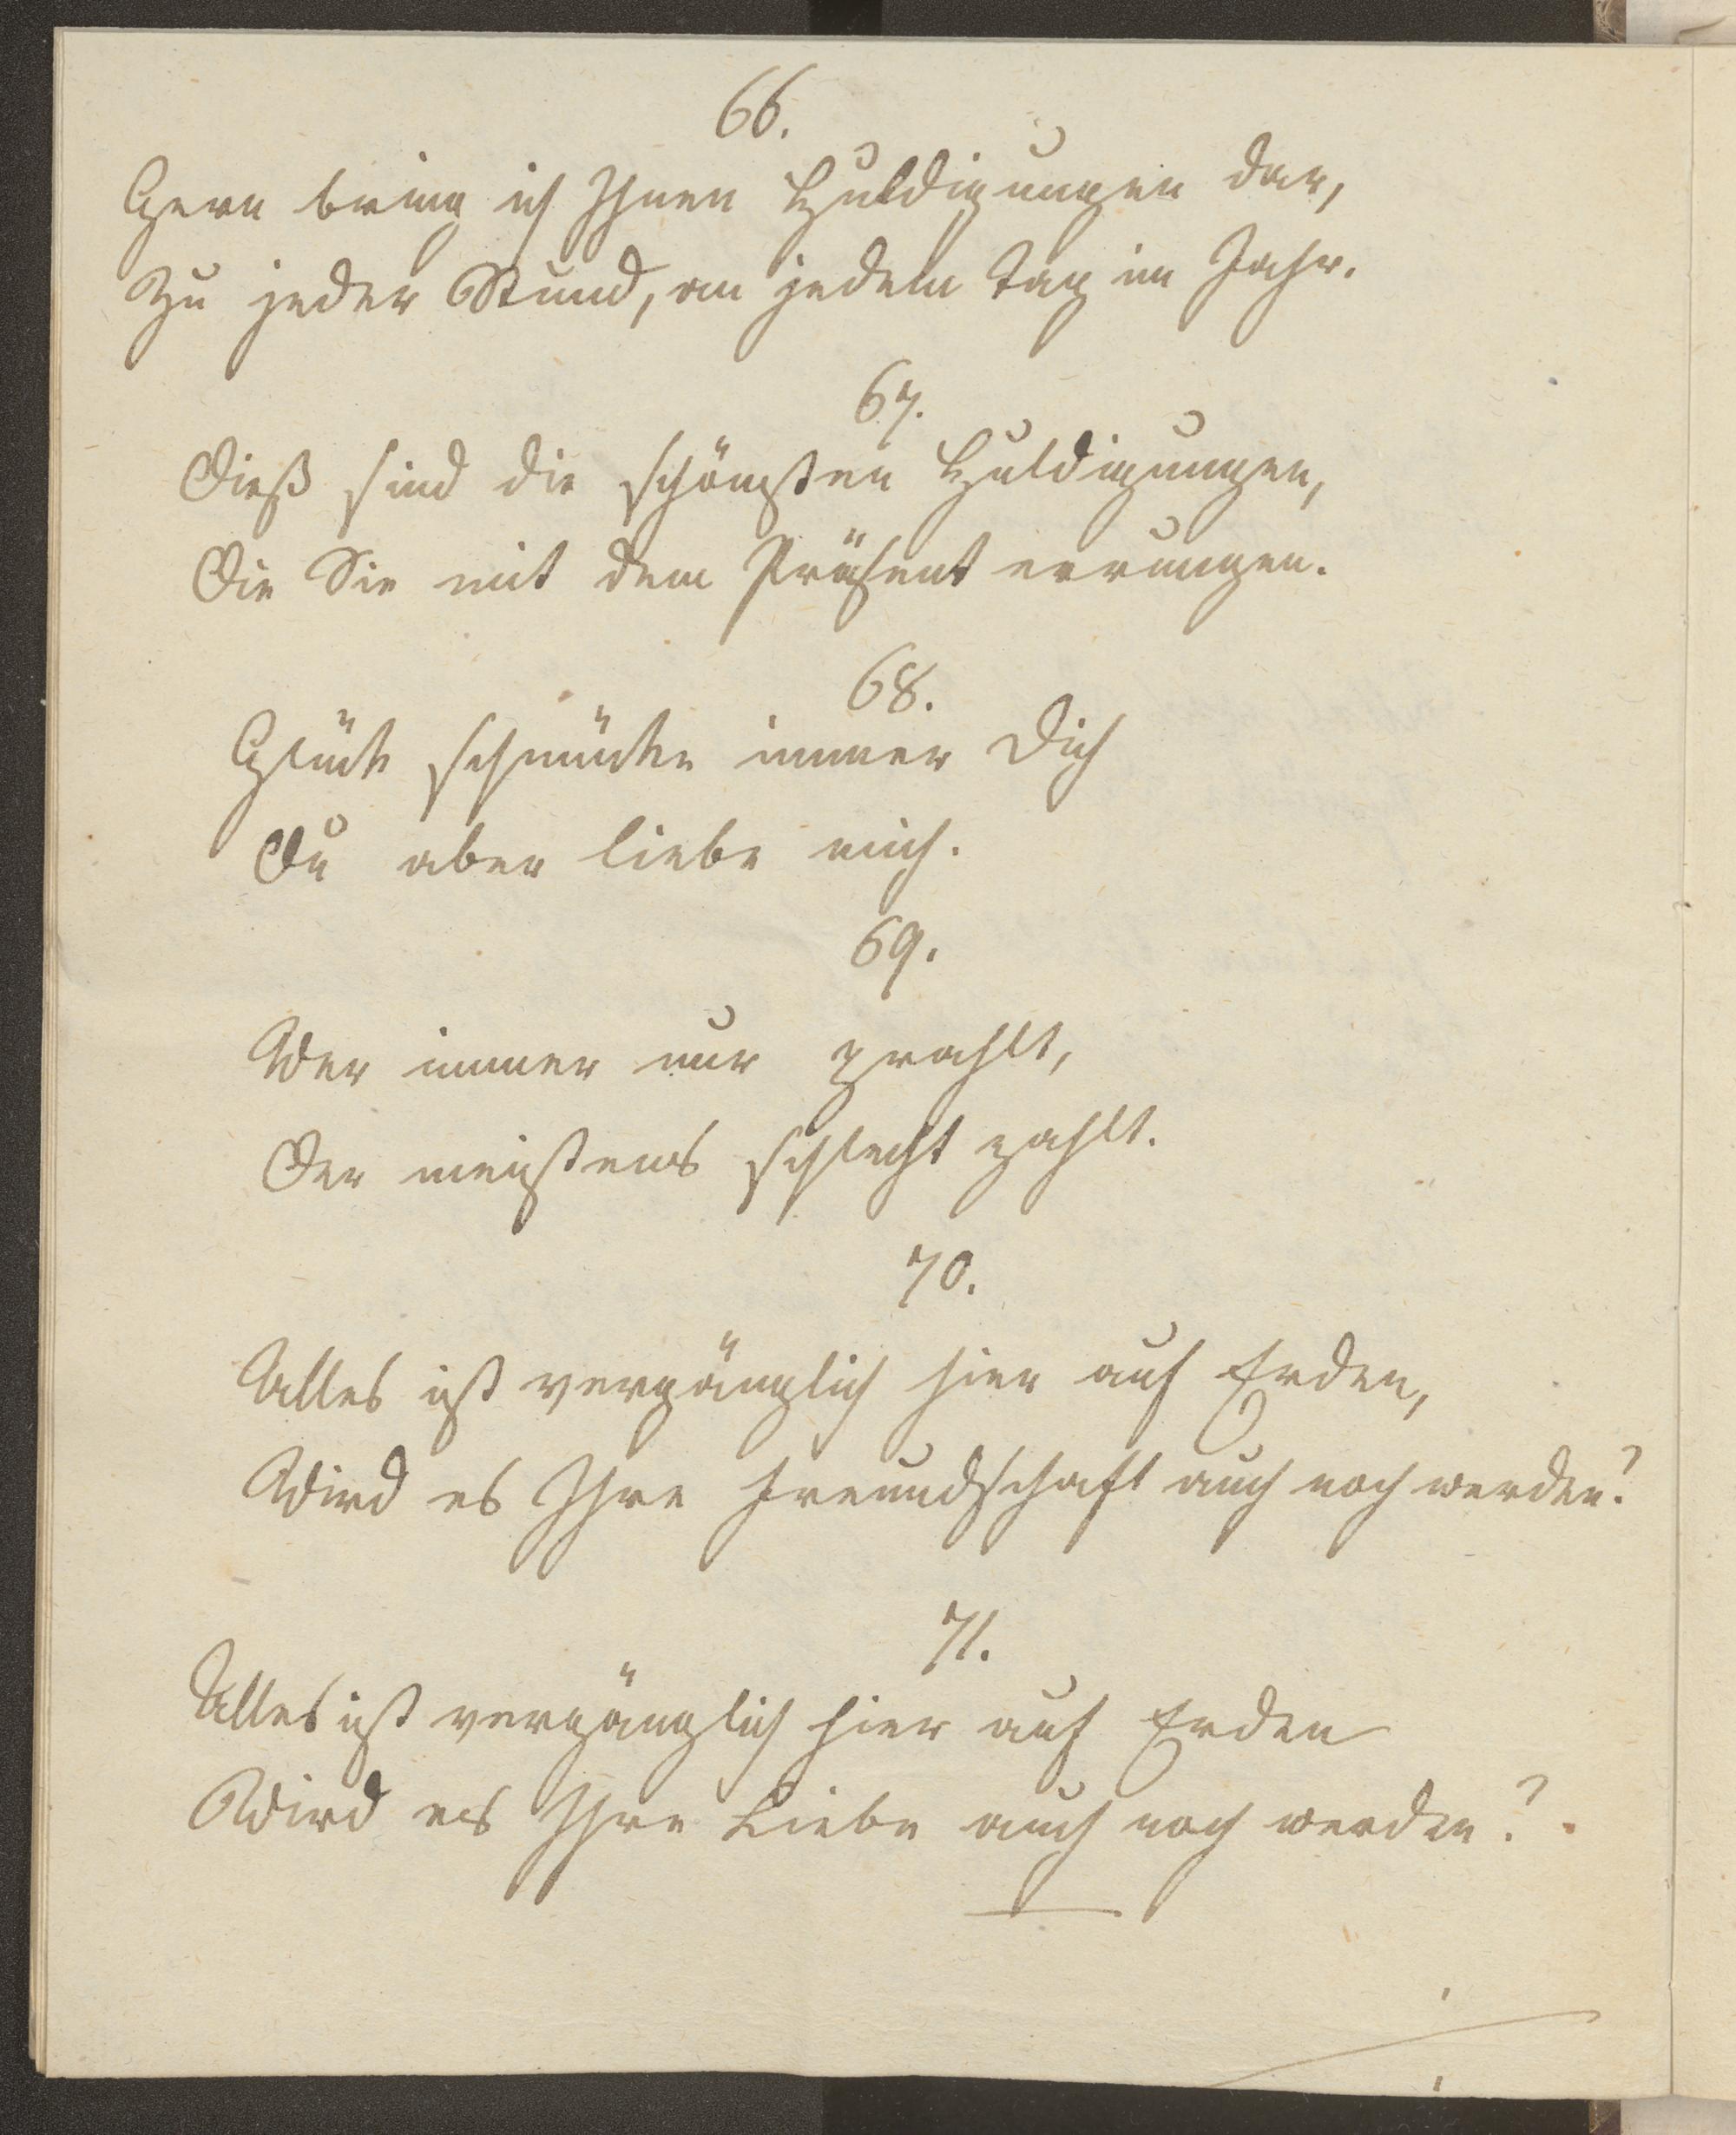 66.
Gern bring ich Ihnen Huldigungen dar,
Zu jeder Stund, an jedem Tag im Jahr.
67.
Dieß sind die schönsten Huldigungen,
Die Sie mit dem Präsent errungen.
68.
Glück schmücke immer Dich
Du aber liebe mich.
69.
Wer immer nur prahlt,
Der meistens schlecht zahlt.
70.
Alles ist vergänglich hier auf Erden,
Wird es Ihre Freundschaft auch noch werden?
71.
Alles ist vergänglich hier auf Erden
Wird es Ihre Liebe auch noch werden?